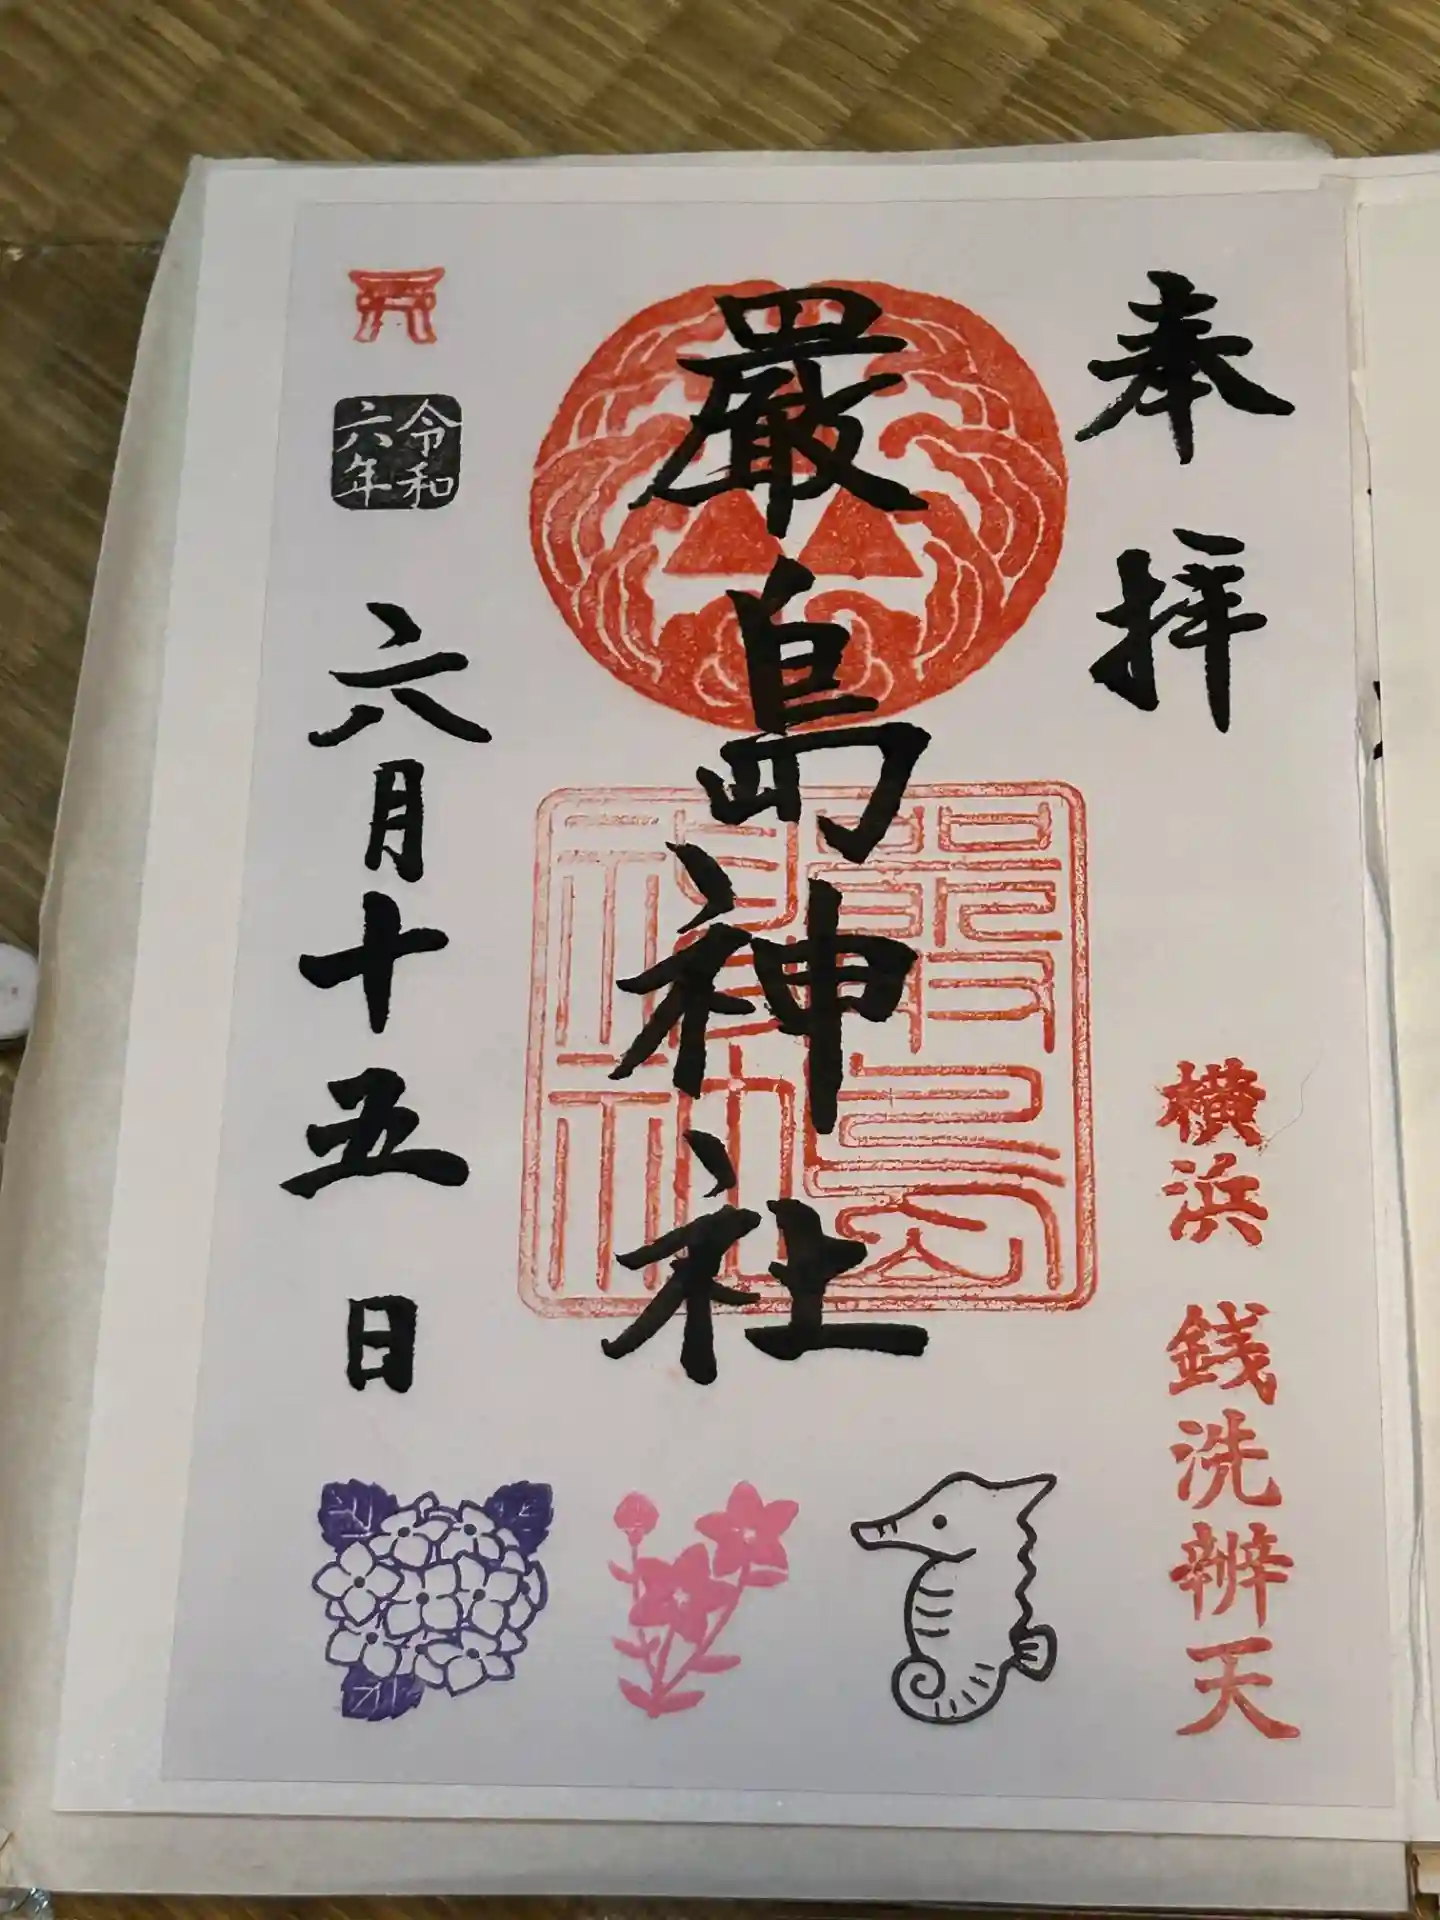 奉拝
横浜 銭洗辨天
厳島神社
令和
六年
六月十五日